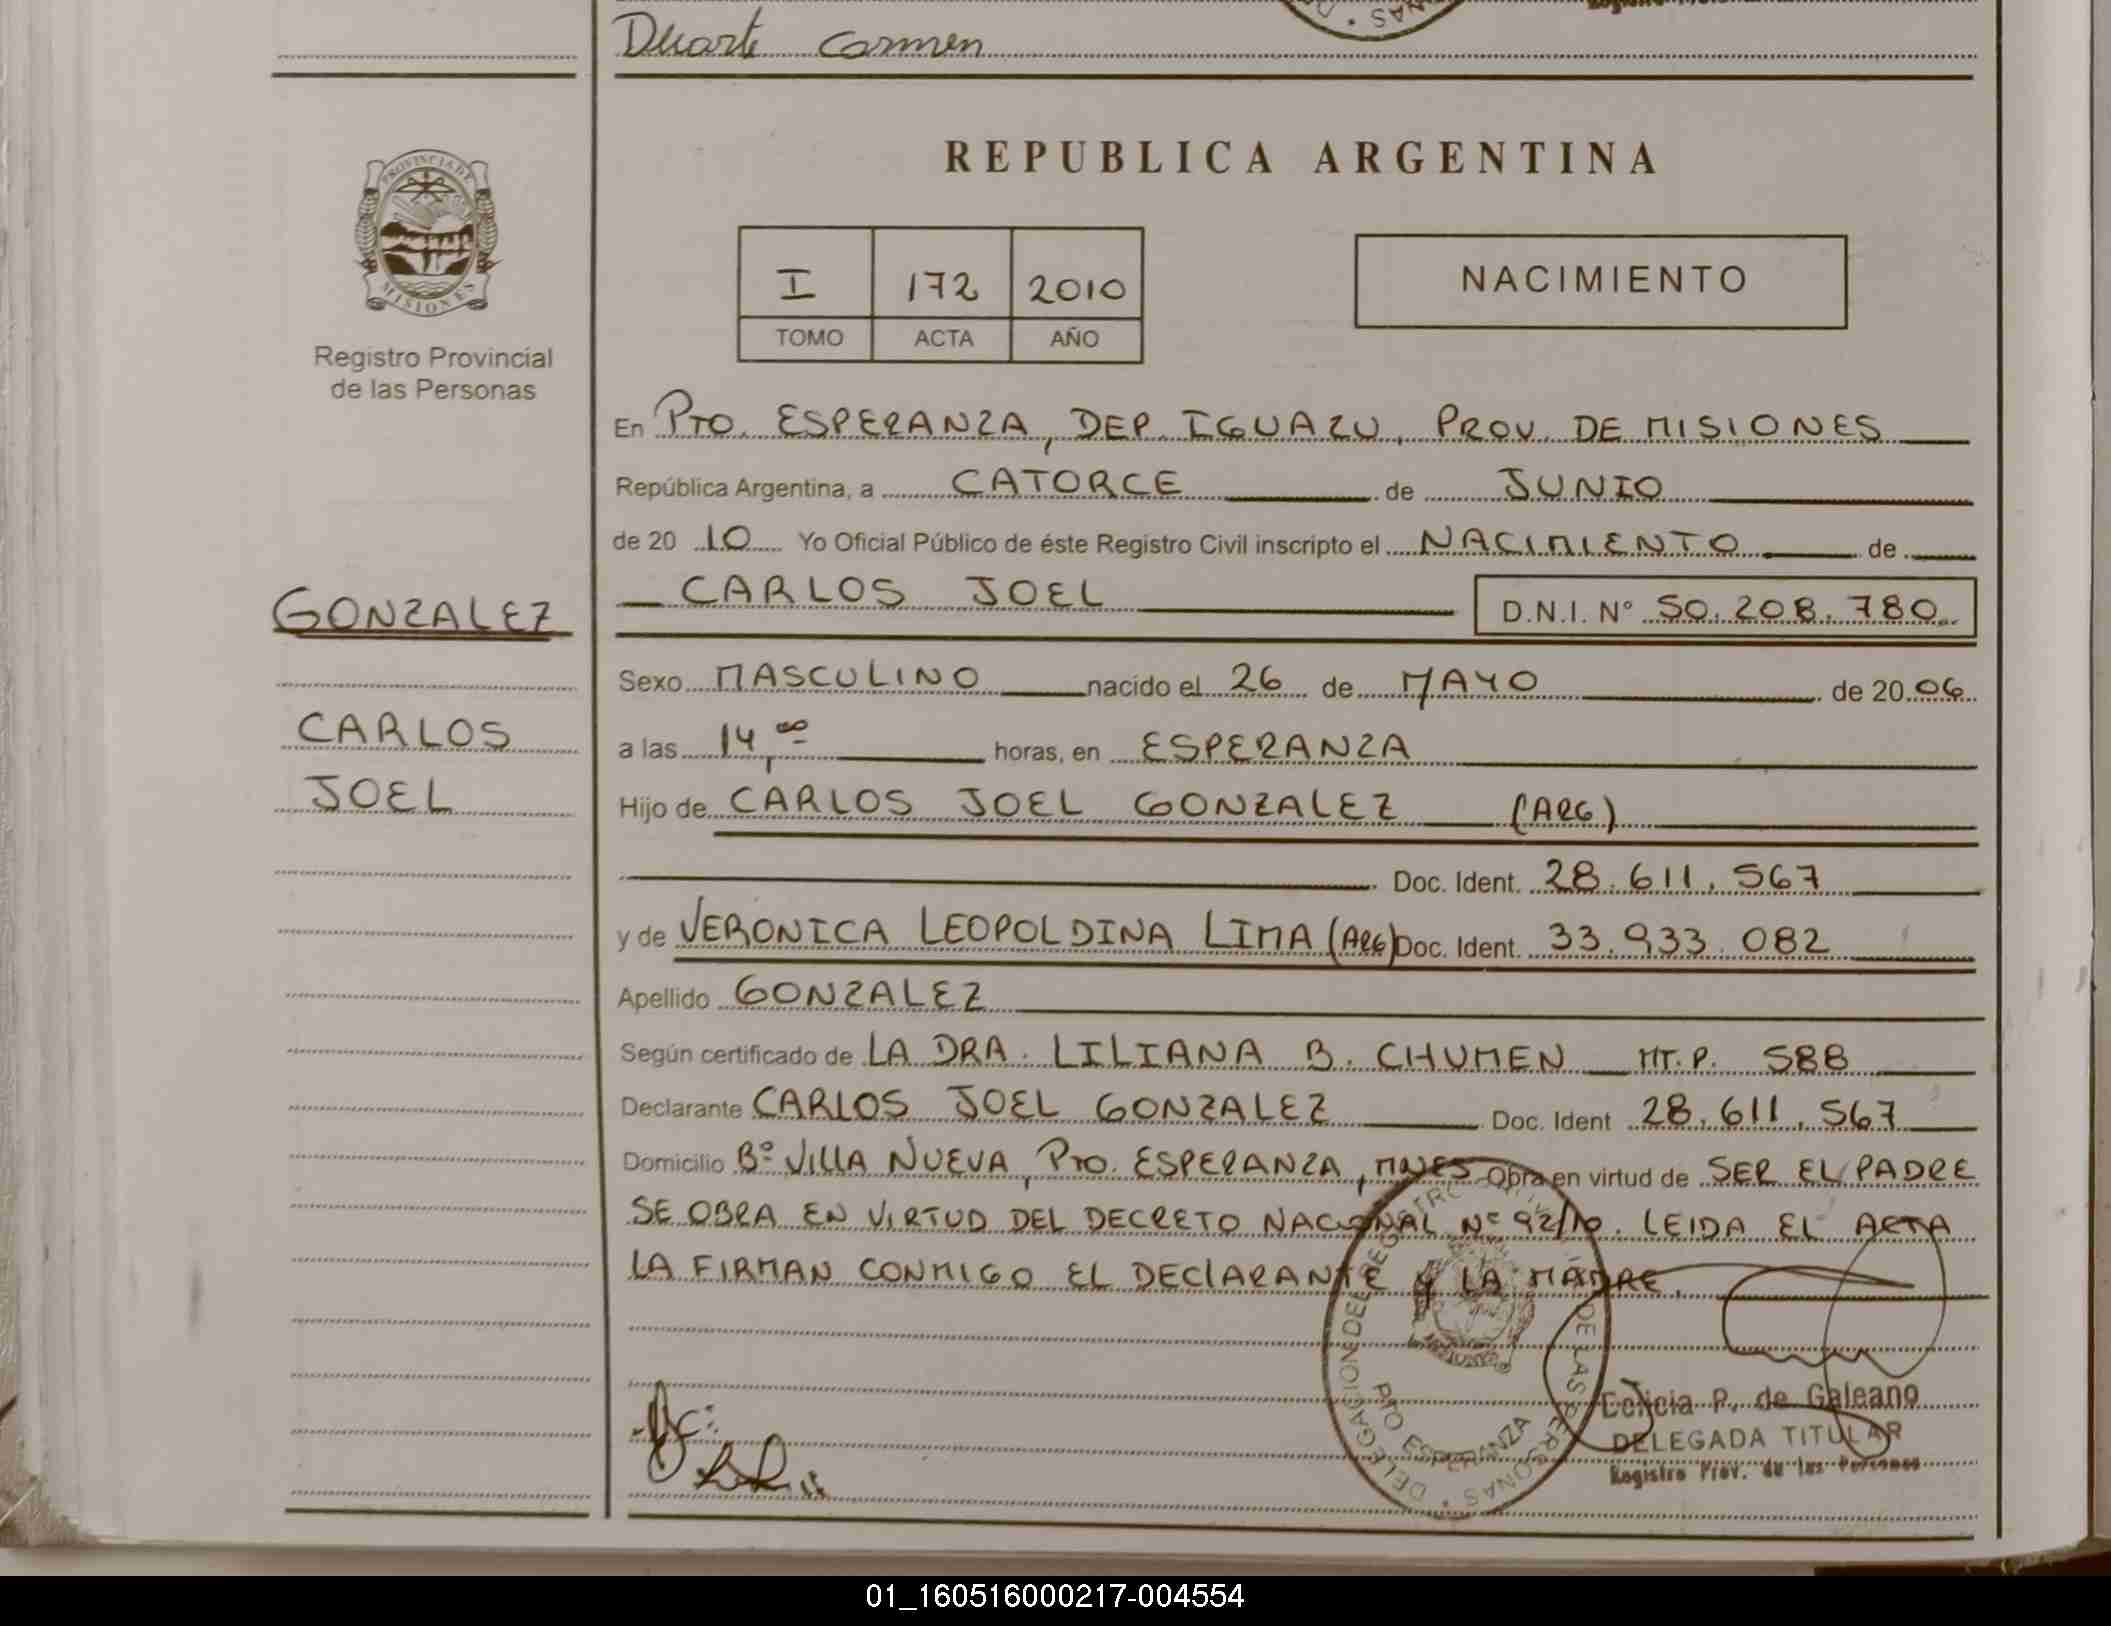 Duarte Carmen
PROVINCIA DE
MISIONES
Registro Provincial
de las Personas
REPUBLICA ARGENTINA
I 172 2010
TOMO ACTA AÑO
NACIMIENTO
En PTO. ESPERANZA, DEP. IGUAZU, PROV. DE MISIONES
República Argentina, a CATORCE de JUNIO
de 20 10 Yo Oficial Público de éste Registro Civil inscripto el NACIMIENTO de
GONZALEZ
CARLOS JOEL D.N.I. N° 50.208.780
Sexo MASCULINO nacido el 26 de MAYO de 20 06
CARLOS
a las 14,00 horas, en ESPERANZA
JOEL
Hijo de CARLOS JOEL GONZALEZ (ARG)
Doc. Ident. 28.611.567
y de VERONICA LEOPOLDINA LIMA (ARG) Doc. Ident. 33.933.082
Apellido GONZALEZ
Según certificado de LA DRA. LILIANA B. CHUMEN MT.P. 588
Declarante CARLOS JOEL GONZALEZ Doc. Ident 28.611.567
Domicilio B° VILLA NUEVA, PTO. ESPERANZA, MNES Obra en virtud de SER EL PADRE
SE OBRA EN VIRTUD DEL DECRETO NACIONAL N° 92/10. LEIDA EL ACTA
LA FIRMAN CONMIGO EL DECLARANTE Y LA MADRE.
DELEGACION DEL REGISTRO DE LAS PERSONAS
PTO ESPERANZA
Leticia P. de Galeano
DELEGADA TITULAR
Registro Prov. de las Personas
01_160516000217-004554